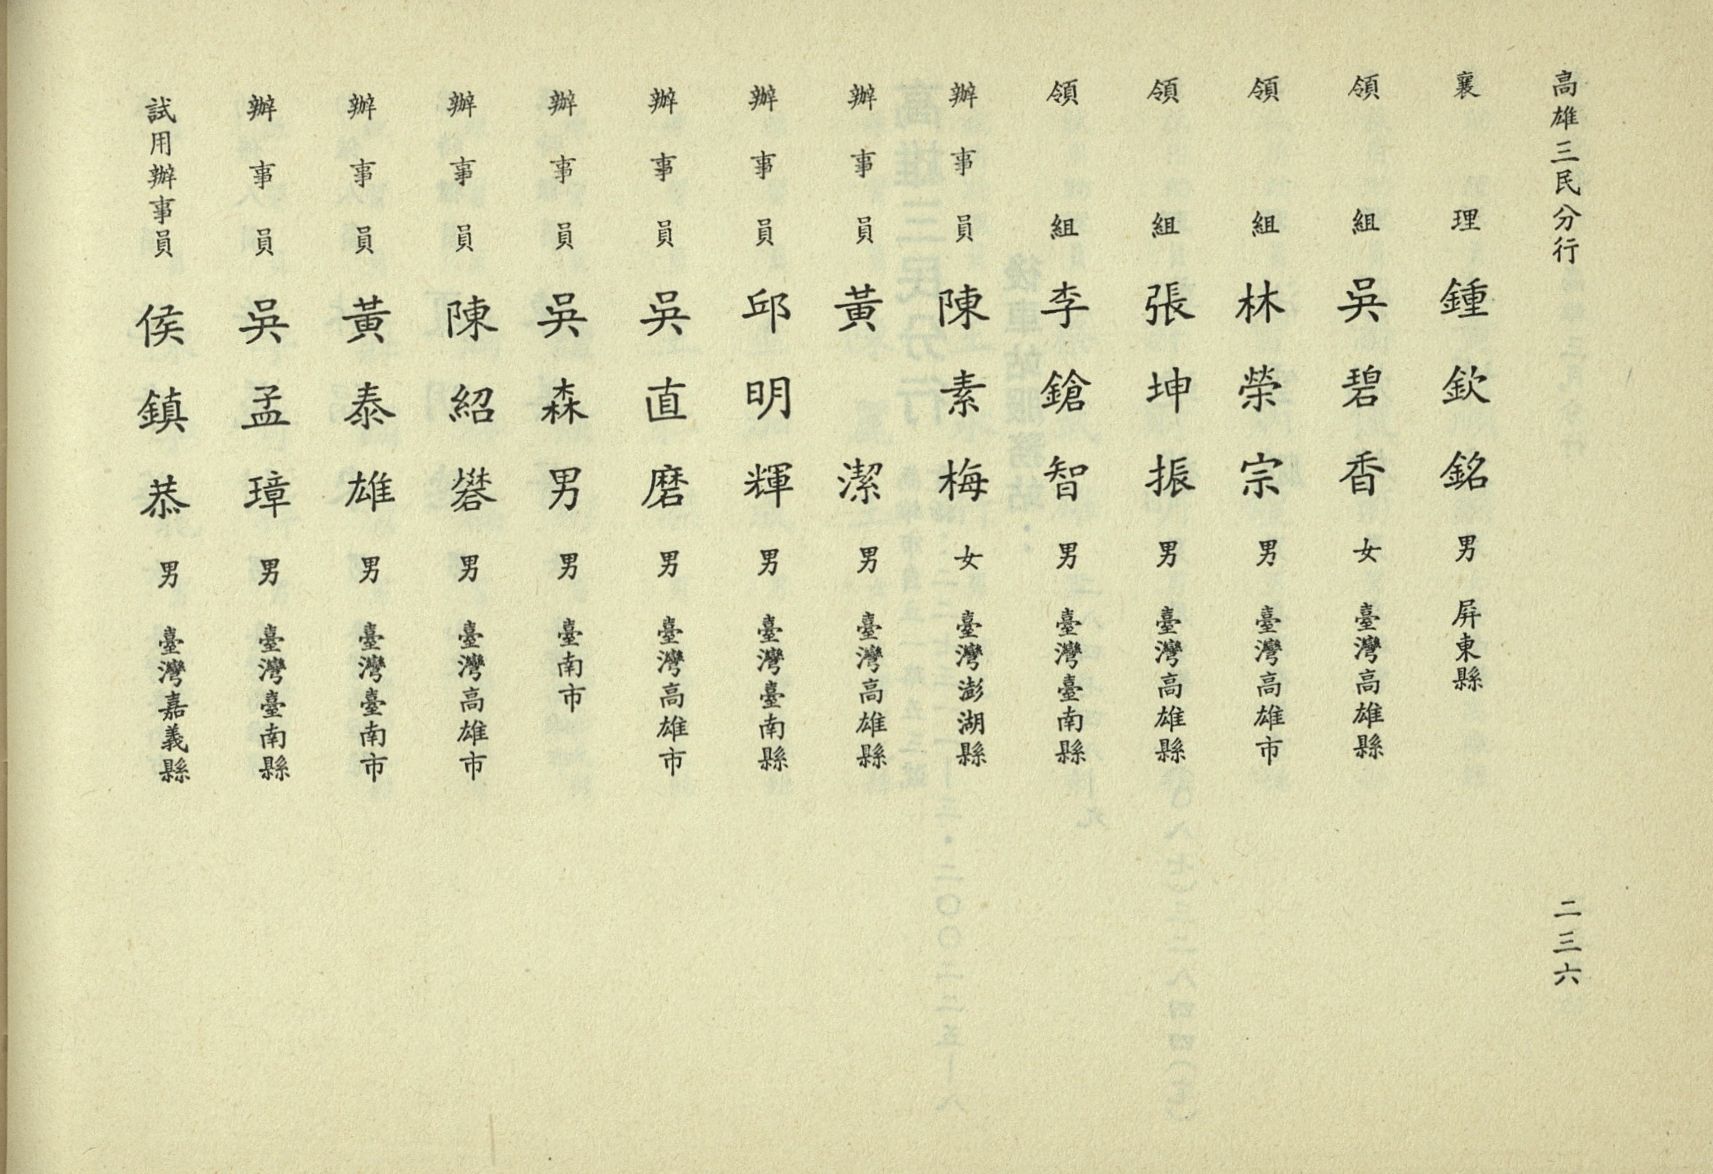 高雄三民分行 二三六
襄理 鍾欽銘 男 屏東縣
領組 吳碧香 女 臺灣高雄縣
領組 林榮宗 男 臺灣高雄市
領組 張坤振 男 臺灣高雄縣
領組 李鎗智 男 臺灣臺南縣
辦事員 陳素梅 女 臺灣澎湖縣
辦事員 黃潔 男 臺灣高雄縣
辦事員 邱明輝 男 臺灣臺南縣
辦事員 吳直磨 男 臺灣高雄市
辦事員 吳森男 男 臺南市
辦事員 陳紹礬 男 臺灣高雄市
辦事員 黃泰雄 男 臺灣臺南市
辦事員 吳孟璋 男 臺灣臺南縣
試用辦事員 侯鎮恭 男 臺灣嘉義縣